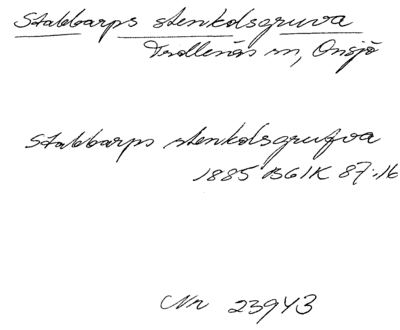 Stabbarps stenkolsgruva
Trollenäs sn, Onsjö
Stabbarps stenkolsgrufva
1885 BG1K 87:16
Nr 23943